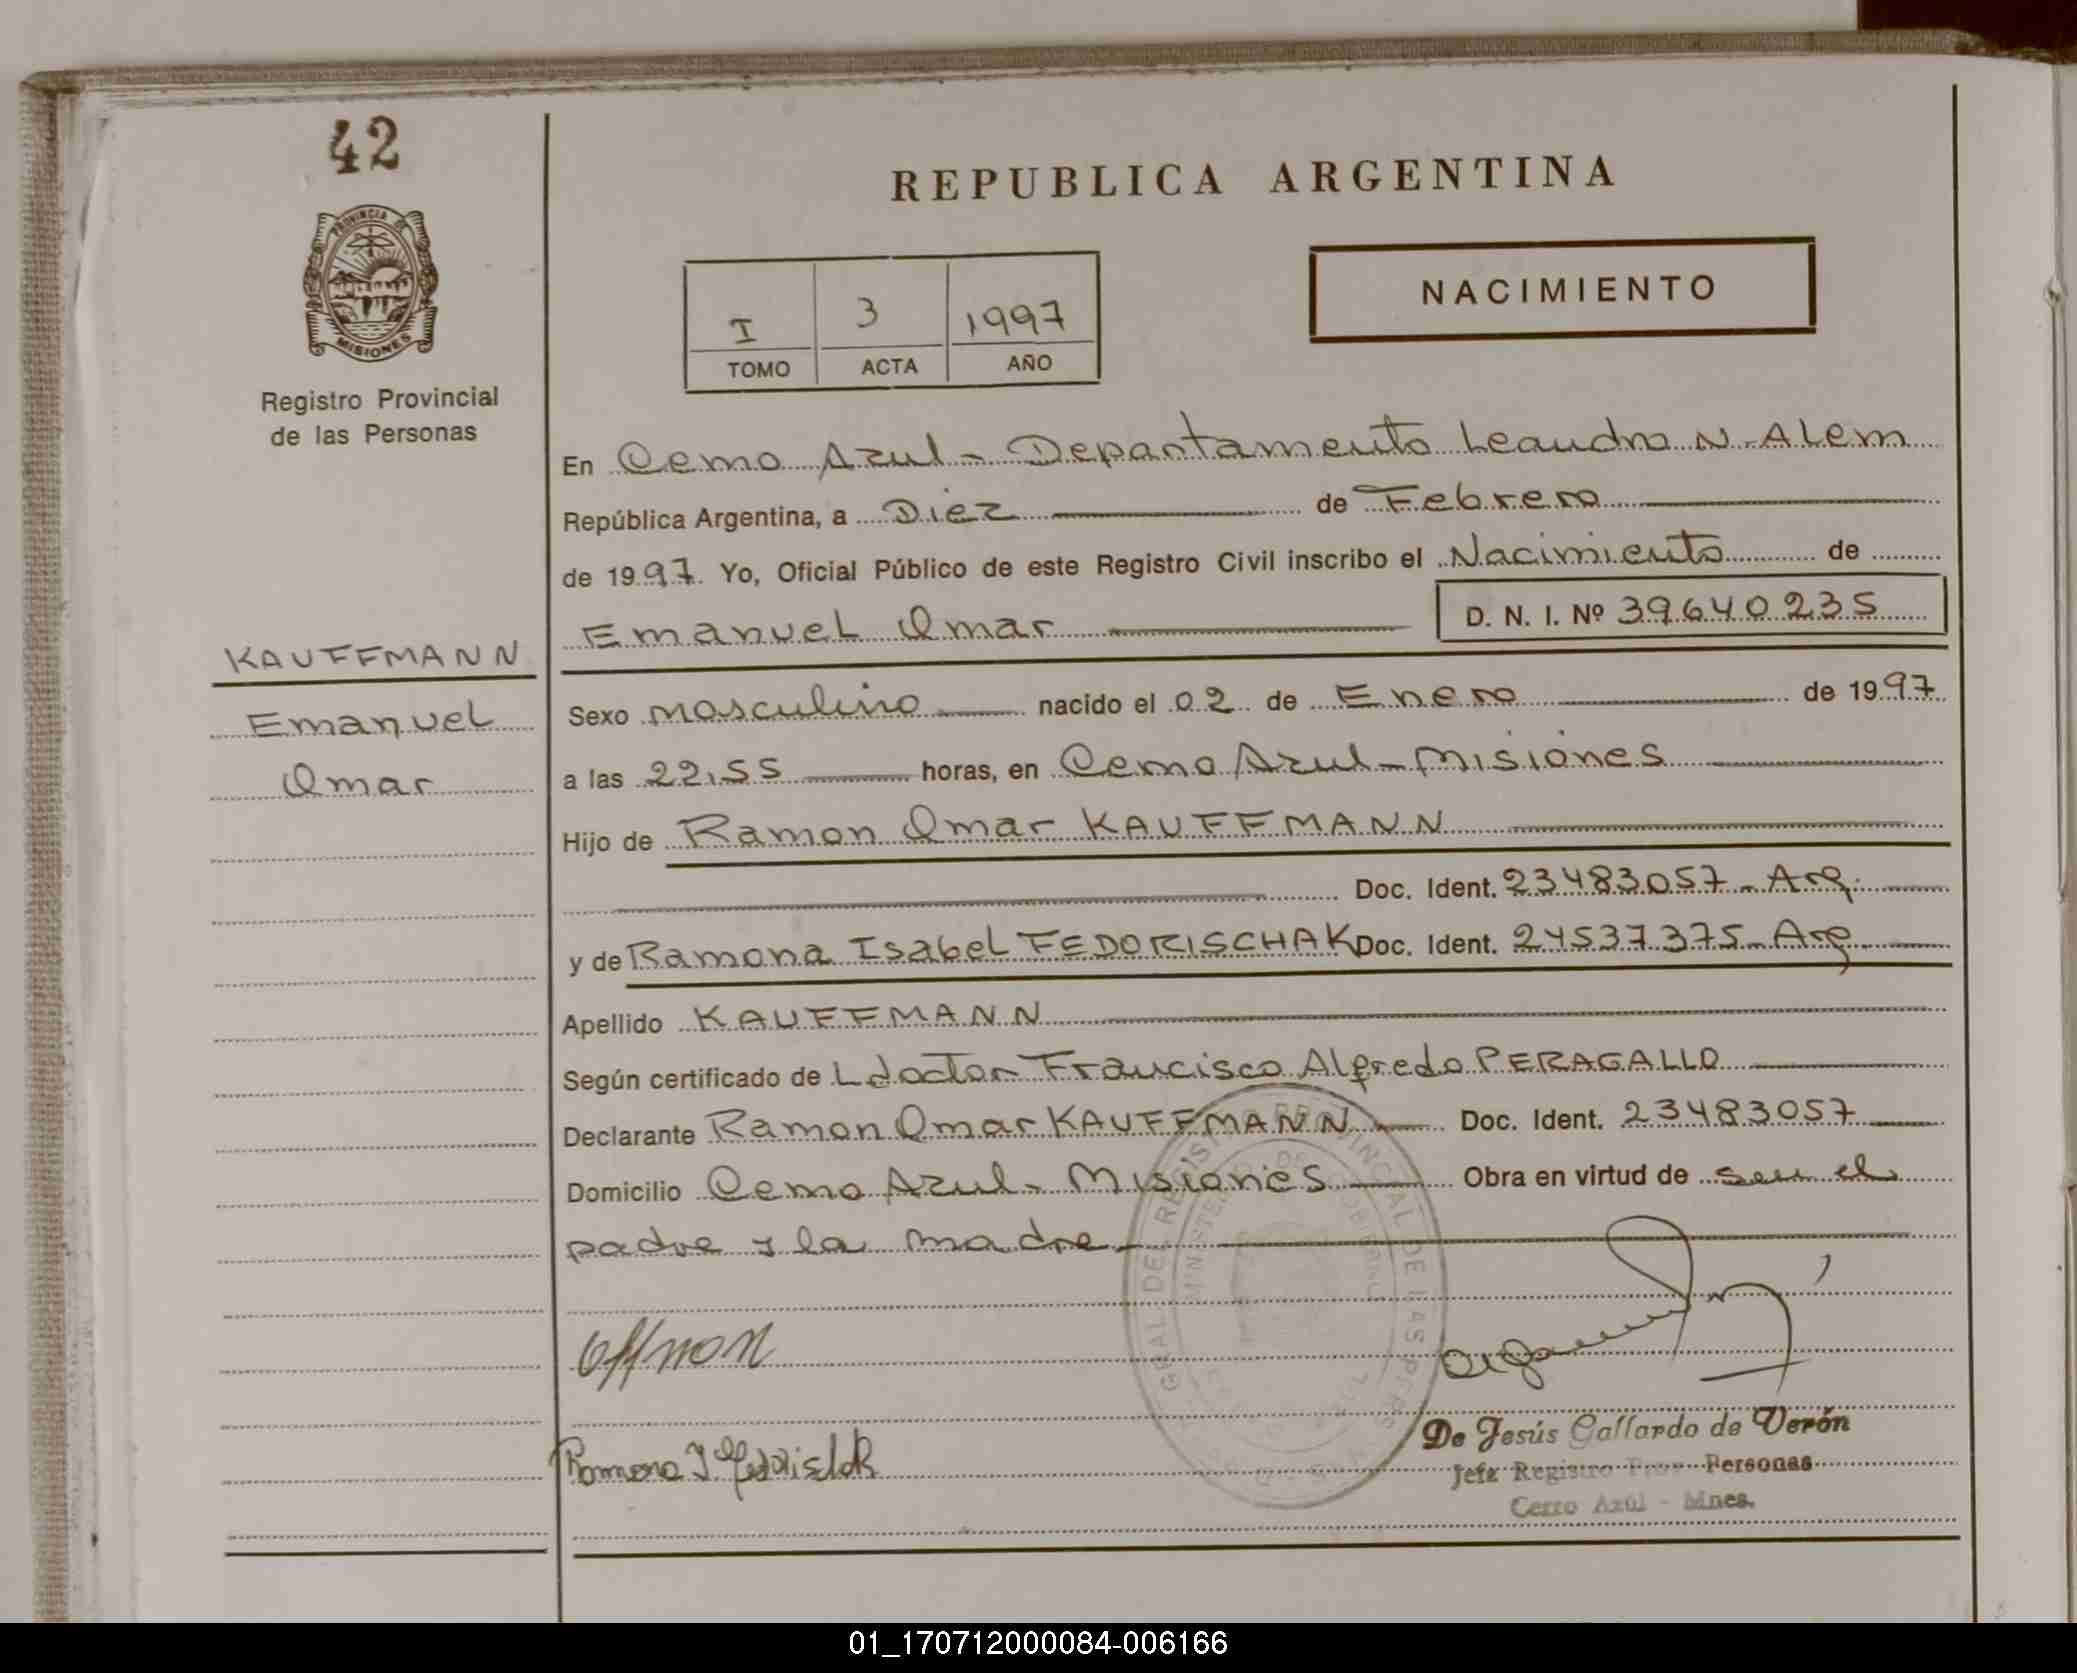 42
REPUBLICA ARGENTINA
PROVINCIA DE
MISIONES
NACIMIENTO
I 3 1997
TOMO ACTA AÑO
Registro Provincial
de las Personas
En Cerro Azul - Departamento Leandro N. Alem
República Argentina, a Diez de Febrero
de 1997. Yo, Oficial Público de este Registro Civil inscribo el Nacimiento de
Emanuel Omar D. N. I. Nº 39640235
KAUFFMANN
Emanuel
Omar
Sexo masculino nacido el 02 de Enero de 1997
a las 22,55 horas, en Cerro Azul - Misiones
Hijo de Ramon Omar KAUFFMANN
Doc. Ident. 23483057 - Arg.
y de Ramona Isabel FEDORISCHAK Doc. Ident. 24537375 - Arg
Apellido KAUFFMANN
Según certificado de L doctor Francisco Alfredo PERAGALLO
Declarante Ramon Omar KAUFFMANN Doc. Ident. 23483057
Domicilio Cerro Azul - Misiones Obra en virtud de ser el
padre y la madre
GRAL DEL REGISTRO PROVINCIAL DE LAS PERS
MINISTERIO DE GOBIERNO
Ramona I
De Jesús Gallardo de Verón
Jefe Registro Prov Personas
Cerro Azul - Mnes.
01_170712000084-006166